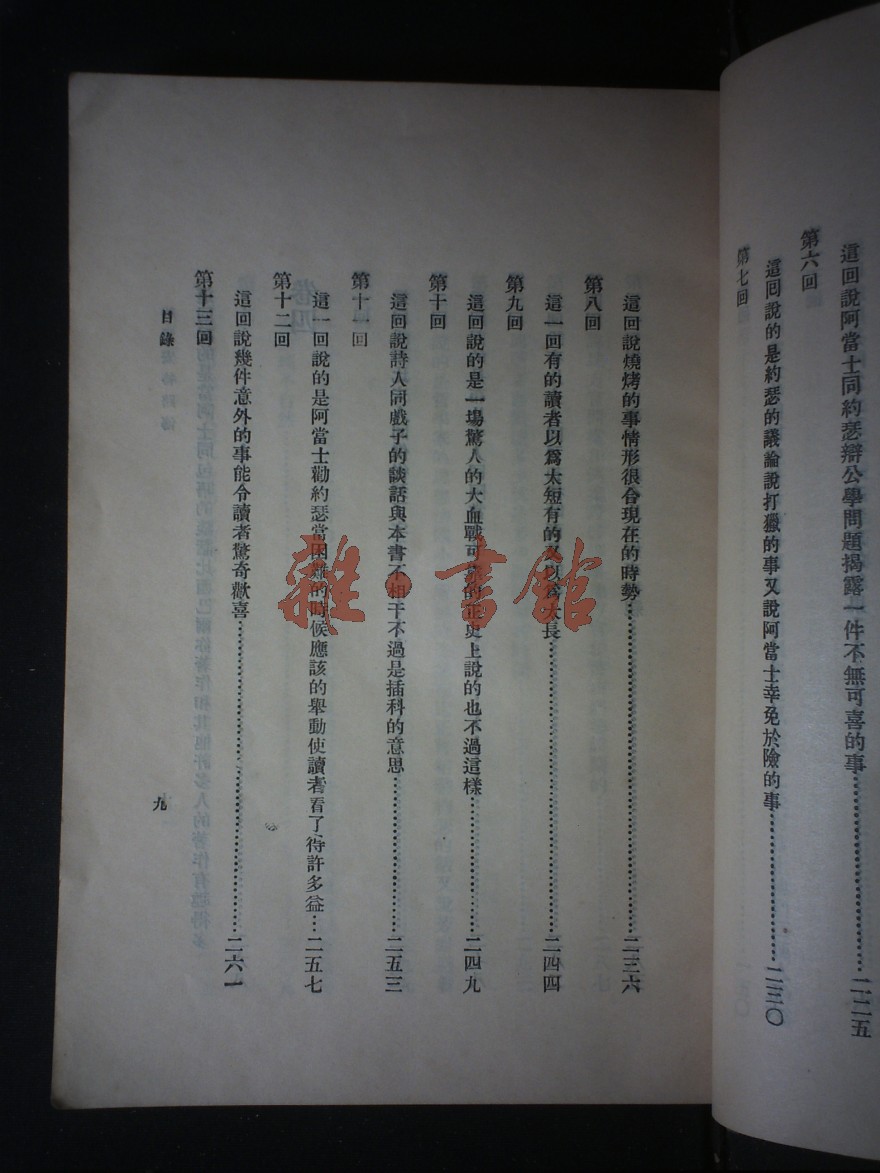 這回說阿當士同約瑟辯公學問題揭露一件不無可喜的事……二二五
第六回
這回說的是約瑟的議論說打獵的事又說阿當士幸免於險的事……二三〇
第七回
這回說燒烤的事情形很合現在的時勢……二三六
第八回
這一回有的讀者以爲太短有的又以爲太長……二四四
第九回
這回說的是一場驚人的大血戰可靠的正史上說的也不過這樣……二四九
第十回
這回說詩人同戲子的談話與本書不相干不過是插科的意思……二五三
第十一回
這一回說的是阿當士勸約瑟當困難的時候應該的舉動使讀者看了得許多益…二五七
第十二回
這回說幾件意外的事能令讀者驚奇歡喜……二六一
第十三回
目錄
九
雜·書館